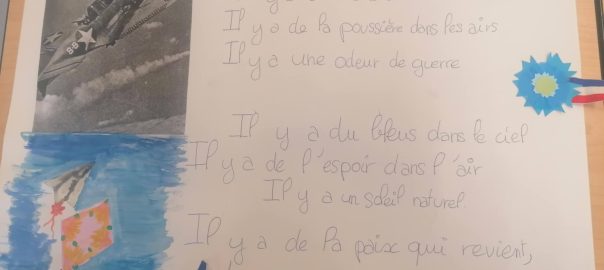 Il y a de la poussière dans les airs
Il y a une odeur de guerre
Il y a du bleus dans le ciel
Il y a de l'espoir dans l'air
Il y a un soleil naturel.
Il y a de la paix qui revient,
88